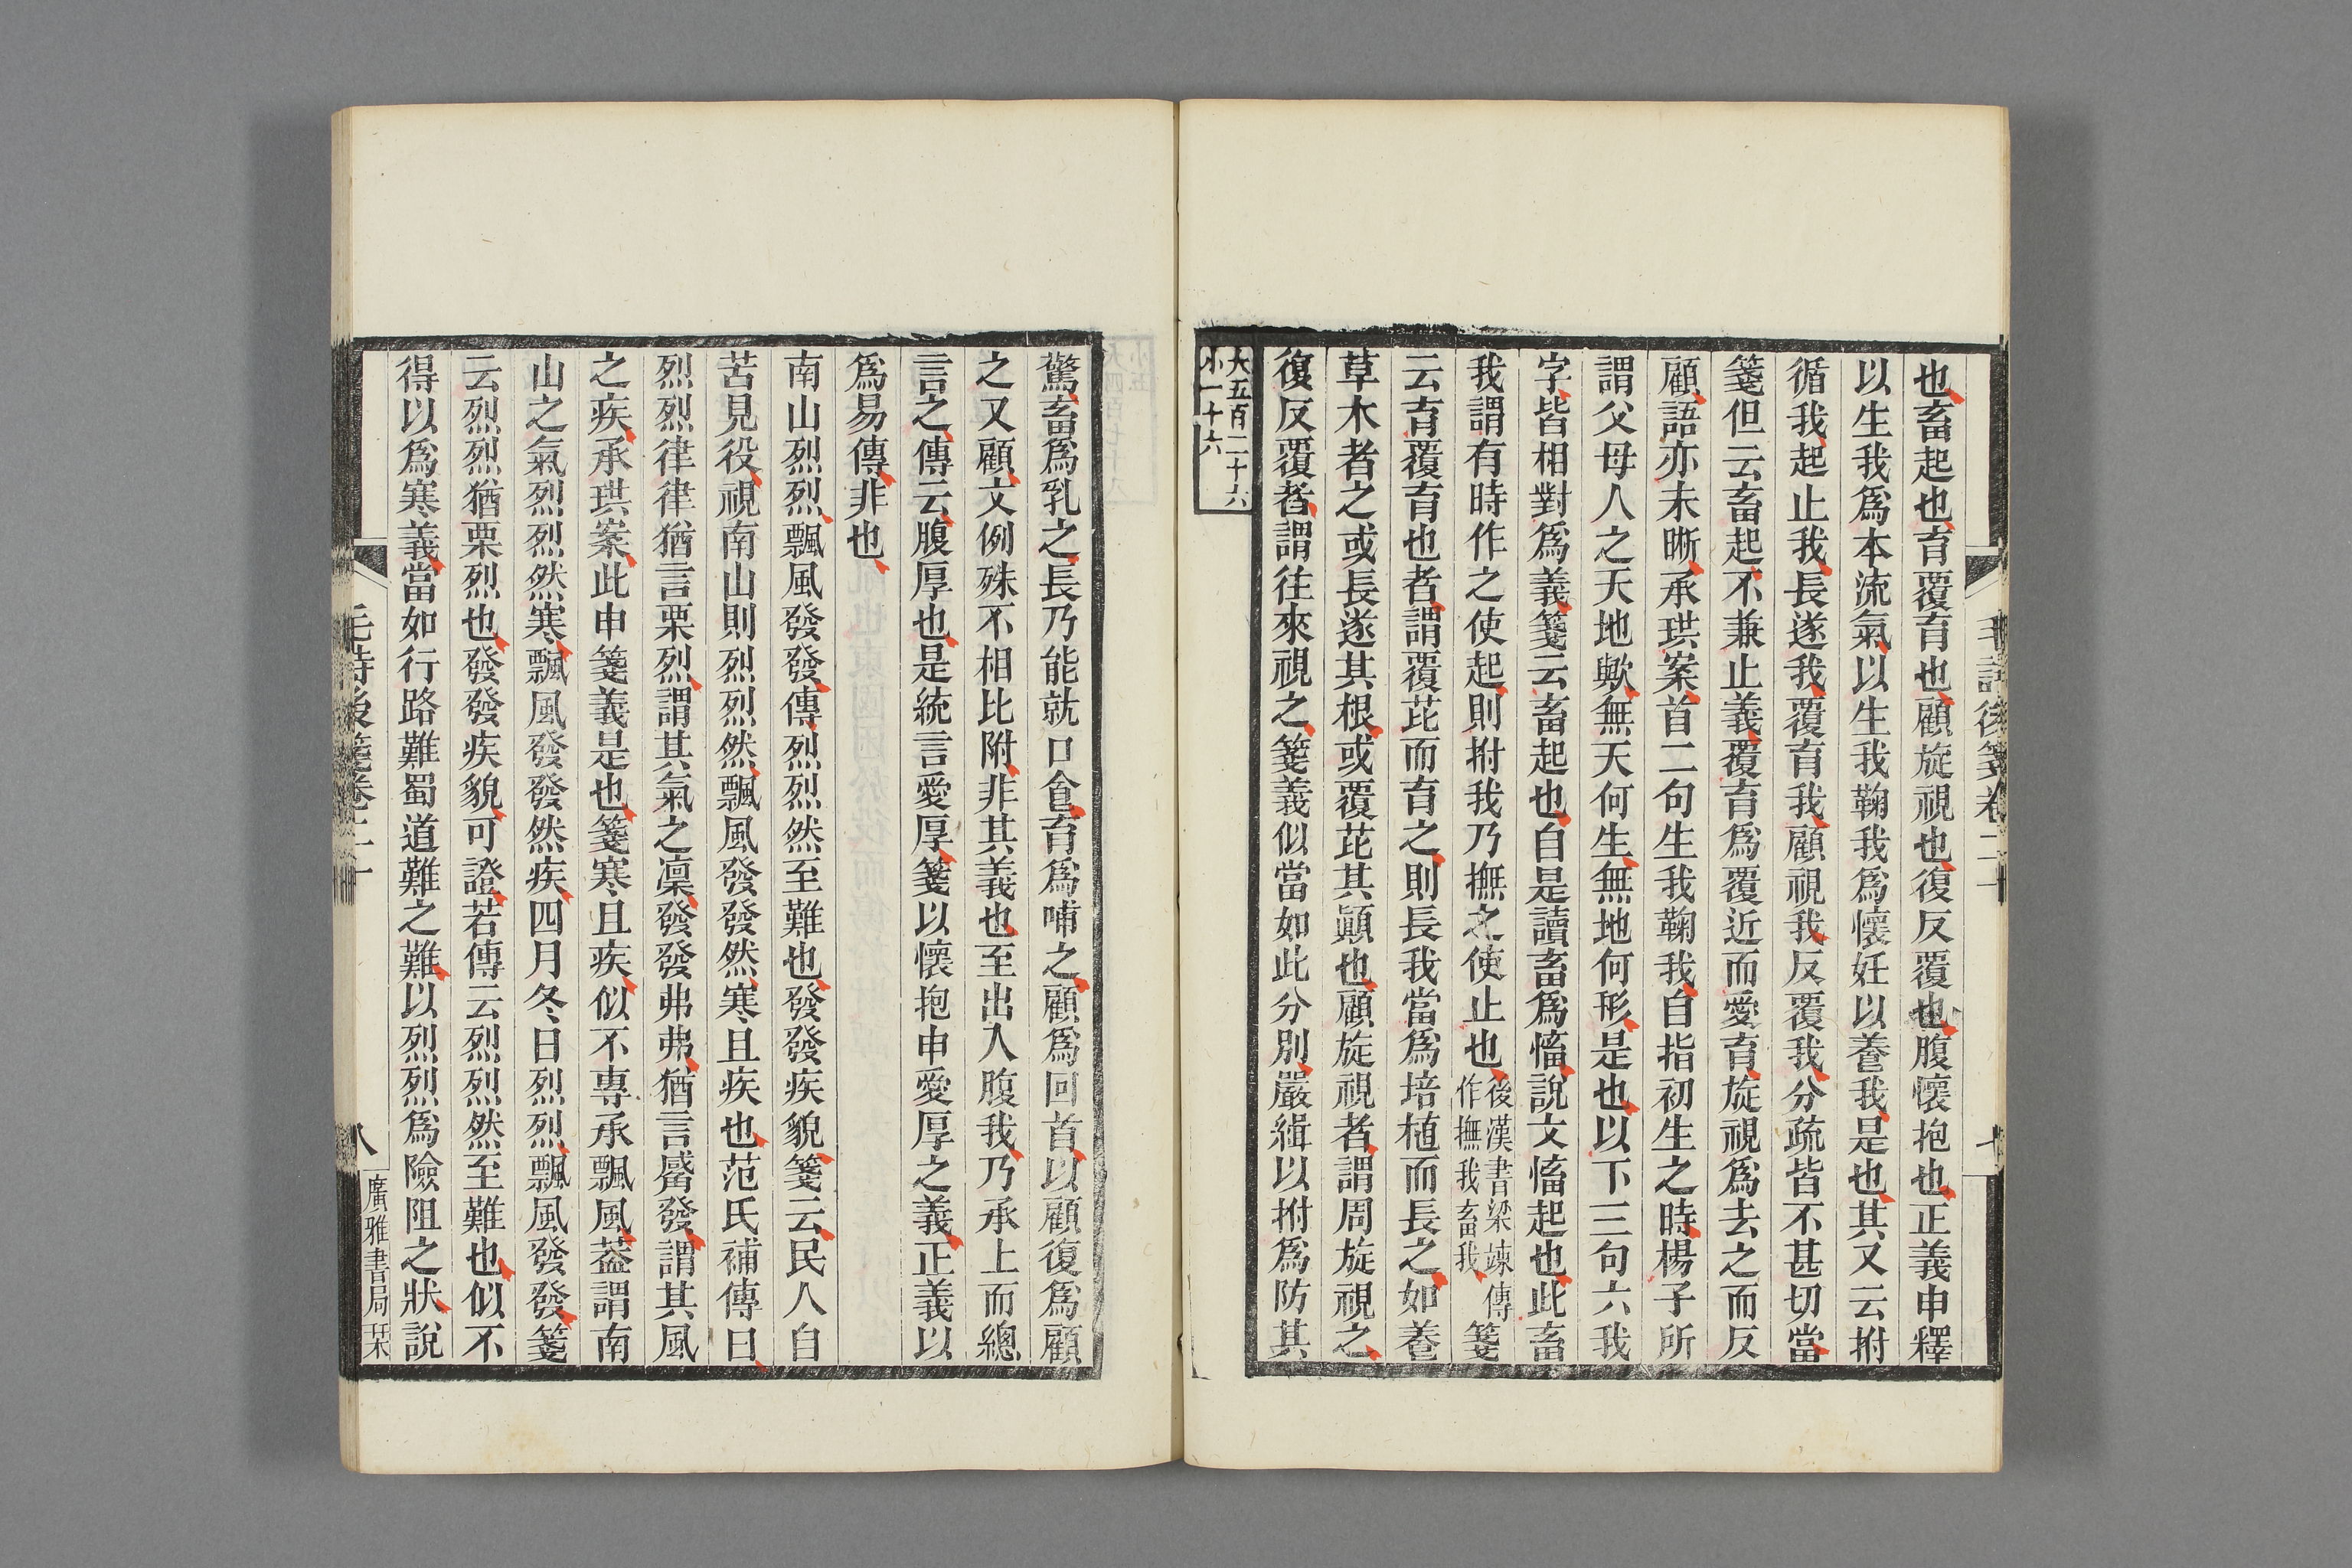 也畜起也育覆育也顧旋視也復反覆也腹懷抱也正義申釋
以生我爲本流氣以生我鞠我爲懷妊以養我是也其又云拊
循我起止我長遂我覆育我顧視我反覆我分疏皆不甚切當
箋但云畜起不兼止義覆育爲覆近而愛育旋視爲去之而反
顧語亦未晰承珙案首二句生我鞠我自指初生之時楊子所
謂父母人之天地歟無天何生無地何形是也以下三句六我
字皆相對爲義箋云畜起也自是讀畜爲慉說文慉起也此畜
我謂有時作之使起則拊我乃撫之使止也後漢書梁竦傳作撫我畜我箋
云育覆育也者謂覆芘而育之則長我當爲培植而長之如養
草木者之或長遂其根或覆芘其顚也顧旋視者謂周旋視之
復反覆者謂往來視之箋義似當如此分別嚴緝以拊爲防其
大五百二十六
小一十六
毛詩後箋卷二十
七
驚畜爲乳之長乃能就口食育爲哺之顧爲回首以顧復爲顧
之又顧文例殊不相比附非其義也至出入腹我乃承上而總
言之傳云腹厚也是統言愛厚箋以懷抱申愛厚之義正義以
爲易傳非也
南山烈烈飄風發發傳烈烈然至難也發發疾貌箋云民人自
苦見役視南山則烈烈然飄風發發然寒且疾也范氏補傳曰
烈烈律律猶言栗烈謂其氣之凜發發弗弗猶言觱發謂其風
之疾承珙案此申箋義是也箋寒且疾似不專承飄風葢謂南
山之氣烈烈然寒飄風發發然疾四月冬日烈烈飄風發發箋
云烈烈猶栗烈也發發疾貌可證若傳云烈烈然至難也似不
得以爲寒義當如行路難蜀道難之難以烈烈爲險阻之狀說
毛詩後箋卷二十
八
廣雅書局栞